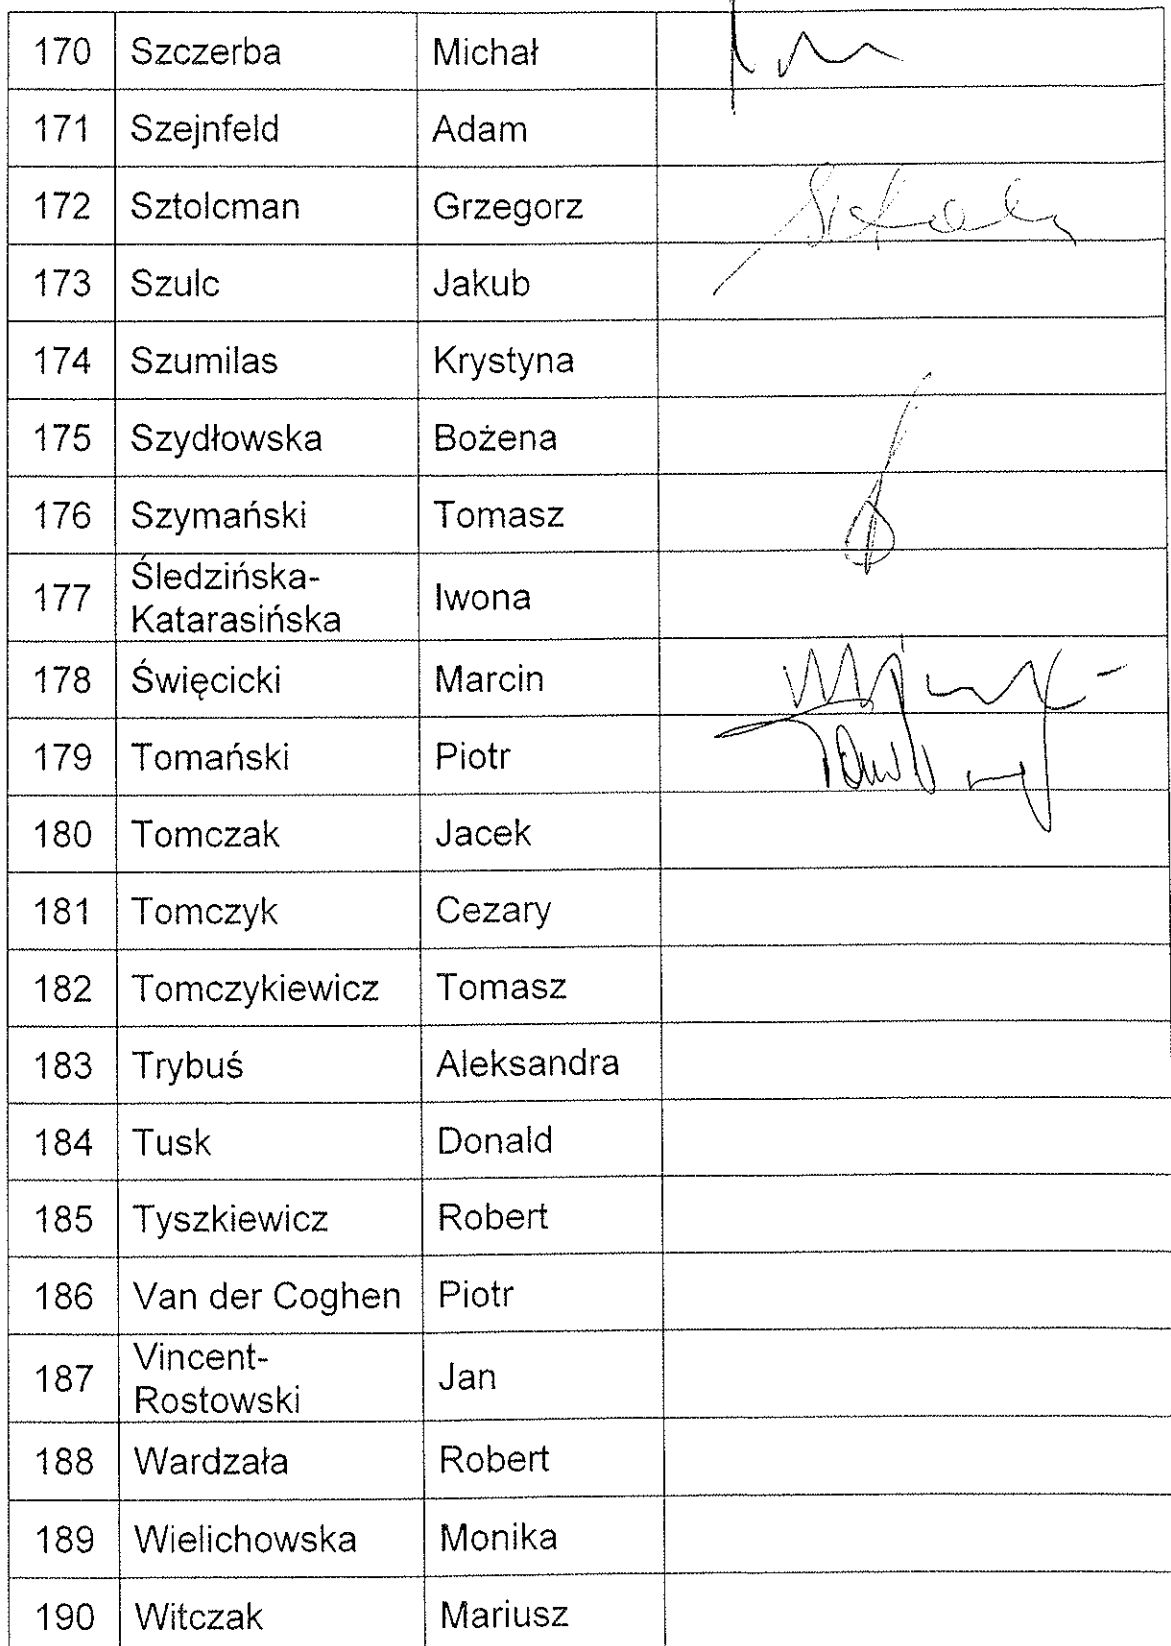 170 Szczerba Michał
171 Szejnfeld Adam
172 Sztolcman Grzegorz
173 Szulc Jakub
174 Szumilas Krystyna
175 Szydłowska Bożena
176 Szymański Tomasz
Śledzińska-
177 Iwona
Katarasińska
178 Święcicki Marcin
179 Tomański Piotr
180 Tomczak Jacek
181 Tomczyk Cezary
182 Tomczykiewicz Tomasz
183 Trybuś Aleksandra
184 Tusk Donald
185 Tyszkiewicz Robert
186 Van der Coghen Piotr
Vincent-
187 Jan
Rostowski
188 Wardzała Robert
189 Wielichowska Monika
190 Witczak Mariusz